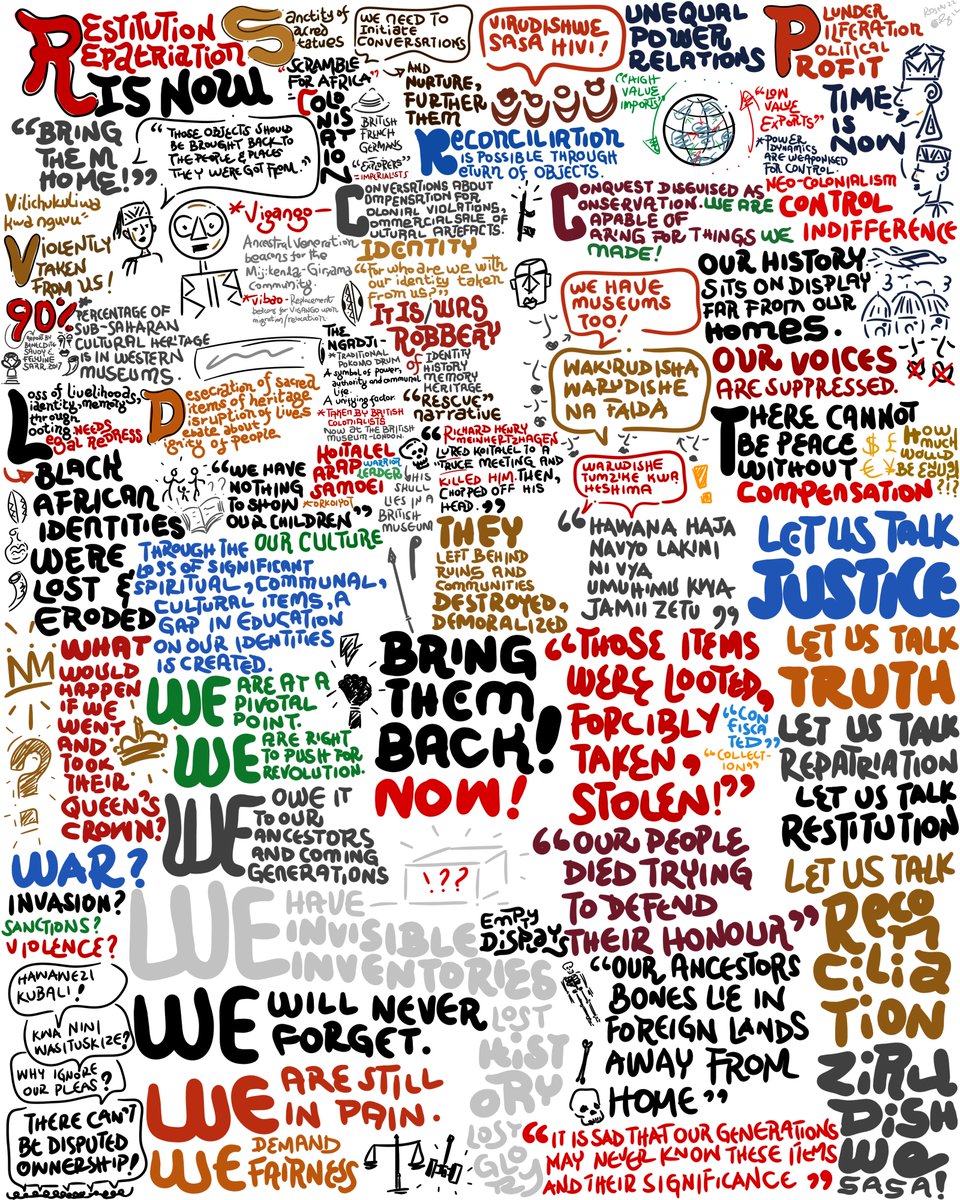 RESTITUTION
REPATRIATION
IS NOW
Sanctity of
Sacred
Statues
WE NEED TO
INITIATE
CONVERSATIONS
AND
NURTURE,
FURTHER
THEM
VIRUDISHWE
SASA HIVI!
UNEQUAL
POWER
RELATIONS
PLUNDER
PILFERATION
POLITICAL
PROFIT
"SCRAMBLE
FOR AFRICA"
COLONISATION
BRITISH
FRENCH
GERMANS
"EXPLORERS"
=IMPERIALISTS
"HIGH
VALUE
IMPORTS"
"LOW
VALUE
EXPORTS"
*POWER
DYNAMICS
ARE WEAPONISED
FOR CONTROL.
TIME
IS
NOW
"BRING
THEM
HOME!"
"THOSE OBJECTS SHOULD
BE BROUGHT BACK TO
THE PEOPLE & PLACES
THEY WERE GOT FROM."
RECONCILIATION
IS POSSIBLE THROUGH
RETURN OF OBJECTS.
Vilichukuliwa
kwa nguvu-
VIOLENTLY
TAKEN
FROM US!
*Vigango-
Ancestral veneration
beacons for the
Mijikenda-Giryama
community.
*Vibao-Replacement
beacons for VIGANGO upon
migration/relocation
CONVERSATIONS ABOUT
COMPENSATION FOR
COLONIAL VIOLATIONS,
COMMERCIAL SALE OF
CULTURAL ARTEFACTS.
IDENTITY
"For who are we with
our identity taken
from us?"
CONQUEST DISGUISED AS
CONSERVATION. WE ARE
CAPABLE OF
CARING FOR THINGS WE
MADE!
NEO-COLONIALISM
CONTROL
INDIFFERENCE
WE HAVE
MUSEUMS
TOO!
OUR HISTORY
SITS ON DISPLAY
FAR FROM OUR
HOMES.
90%
*PERCENTAGE OF
SUB-SAHARAN
CULTURAL HERITAGE
IS IN WESTERN
MUSEUMS.
REPORT BY
BENEDICTE
SAVOY &
FELWINE
SARR, 2017
THE
NGADJI-
*TRADITIONAL
POKOMO DRUM
A symbol of power,
authority and communal
life.
A unifying factor.
*TAKEN BY BRITISH
COLONIALISTS
NOW AT THE BRITISH
MUSEUM-LONDON.
IT IS WAS
ROBBERY
OF IDENTITY
HISTORY
MEMORY
HERITAGE
"RESCUE"
narrative
WAKIRUDISHA
WARUDISHE
NA FAIDA
OUR VOICES
ARE SUPPRESSED.
Loss of livelihoods,
identity, memory
through
looting NEEDS
legal REDRESS
Desecration of sacred
items of heritage
disruption of lives
debate about
dignity of people
KOITALEL
ARAP
SAMOEI
WARRIOR
LEADER
*ORKOIYOT
HIS
SKULL
LIES IN A
BRITISH
MUSEUM
"RICHARD HENRY
MEINHERTZHAGEN
LURED KOITALEL TO A
TRUCE MEETING AND
KILLED HIM. THEN,
CHOPPED OFF HIS
HEAD."
WARUDISHE
TUMZIKE KWA
HESHIMA
THERE CANNOT
BE PEACE
WITHOUT
COMPENSATION
$ £
€ ¥
HOW
MUCH
WOULD
BE ENUF?
!?!?
BLACK
AFRICAN
IDENTITIES
WERE
LOST &
ERODED
"WE HAVE
NOTHING
TO SHOW
OUR CHILDREN"
OUR CULTURE
THROUGH THE
LOSS OF SIGNIFICANT
SPIRITUAL, COMMUNAL,
CULTURAL ITEMS, A
GAP IN EDUCATION
ON OUR IDENTITIES
IS CREATED.
THEY
LEFT BEHIND
RUINS AND
COMMUNITIES
DESTROYED,
DEMORALIZED
"HAWANA HAJA
NAVYO LAKINI
NI VYA
UMUHIMU KWA
JAMII ZETU"
LET US TALK
JUSTICE
WHAT
WOULD
HAPPEN
IF WE
WENT
AND
TOOK
THEIR
QUEEN'S
CROWN?
WE ARE AT A
PIVOTAL
POINT.
WE ARE RIGHT
TO PUSH FOR
REVOLUTION.
BRING
THEM
BACK!
NOW!
"THOSE ITEMS
WERE LOOTED,
FORCIBLY
TAKEN,
STOLEN!"
"CON
FISCA
TED"
"COLLECT-
ION"
LET US TALK
TRUTH
LET US TALK
REPATRIATION
LET US TALK
RESTITUTION
WE OWE IT
TO OUR
ANCESTORS
AND COMING
GENERATIONS
WAR?
INVASION?
SANCTIONS?
VIOLENCE?
!??
"OUR PEOPLE
DIED TRYING
TO DEFEND
THEIR HONOUR"
LET US TALK
RECO
N
CILIA
TION
WE HAVE
INVISIBLE
INVENTORIES
EMPTY
DISPLAYS
HAWAWEZI
KUBALI!
KWA NINI
WASITUSKIZE?
WHY IGNORE
OUR PLEAS?
THERE CAN'T
BE DISPUTED
OWNERSHIP!
WE WILL NEVER
FORGET.
LOST
HIST
ORY
LOST
GLO
RY
"OUR ANCESTORS
BONES LIE IN
FOREIGN LANDS
AWAY FROM
HOME"
WE ARE STILL
IN PAIN.
WE DEMAND
FAIRNESS
"IT IS SAD THAT OUR GENERATIONS
MAY NEVER KNOW THESE ITEMS
AND THEIR SIGNIFICANCE"
ZIRU
DISH
WE
SASA!